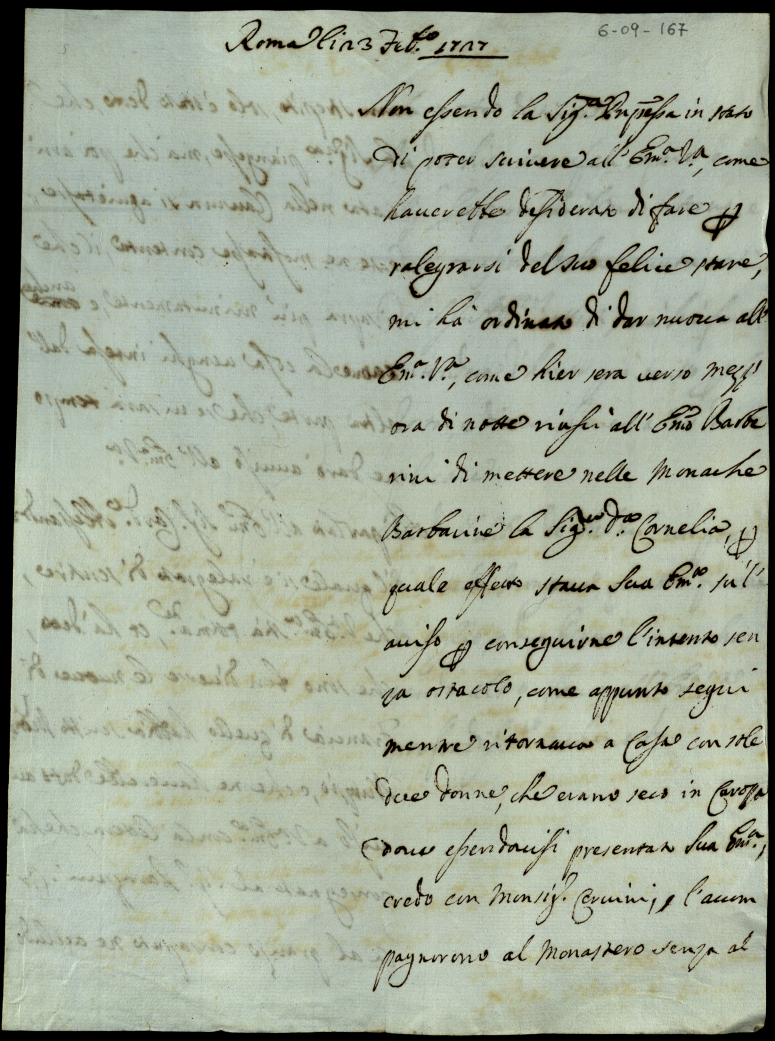 6-09-167
Roma li 23 Feb.º 1727
Non essendo la Sig.ª Prñpessa in stato
di poter scrivere all' Em.ª V.ª, come
haverebbe desiderato di fare p
ralegrarsi del suo felice stare,
mi hà ordinato di dar nuova all'
Em.ª V.ª, come hier sera verso mezz'
ora di notte riuscì all' Em̃o Barbe
rini di mettere nelle Monache
Barbarine la Sig.ra D.ª Cornelia, p
quale effetto stava Sua Em.ª sù l'
aviso p conseguirne l'intento sen
za ostacolo, come appunto seguì
mentre ritornava a Casa con sole
due donne, che erano seco in Carozza
dove essendovisi presentato Sua Em.ª,
credo con Monsig.r Cervini, e l'accom
pagnorono al Monastero senza al